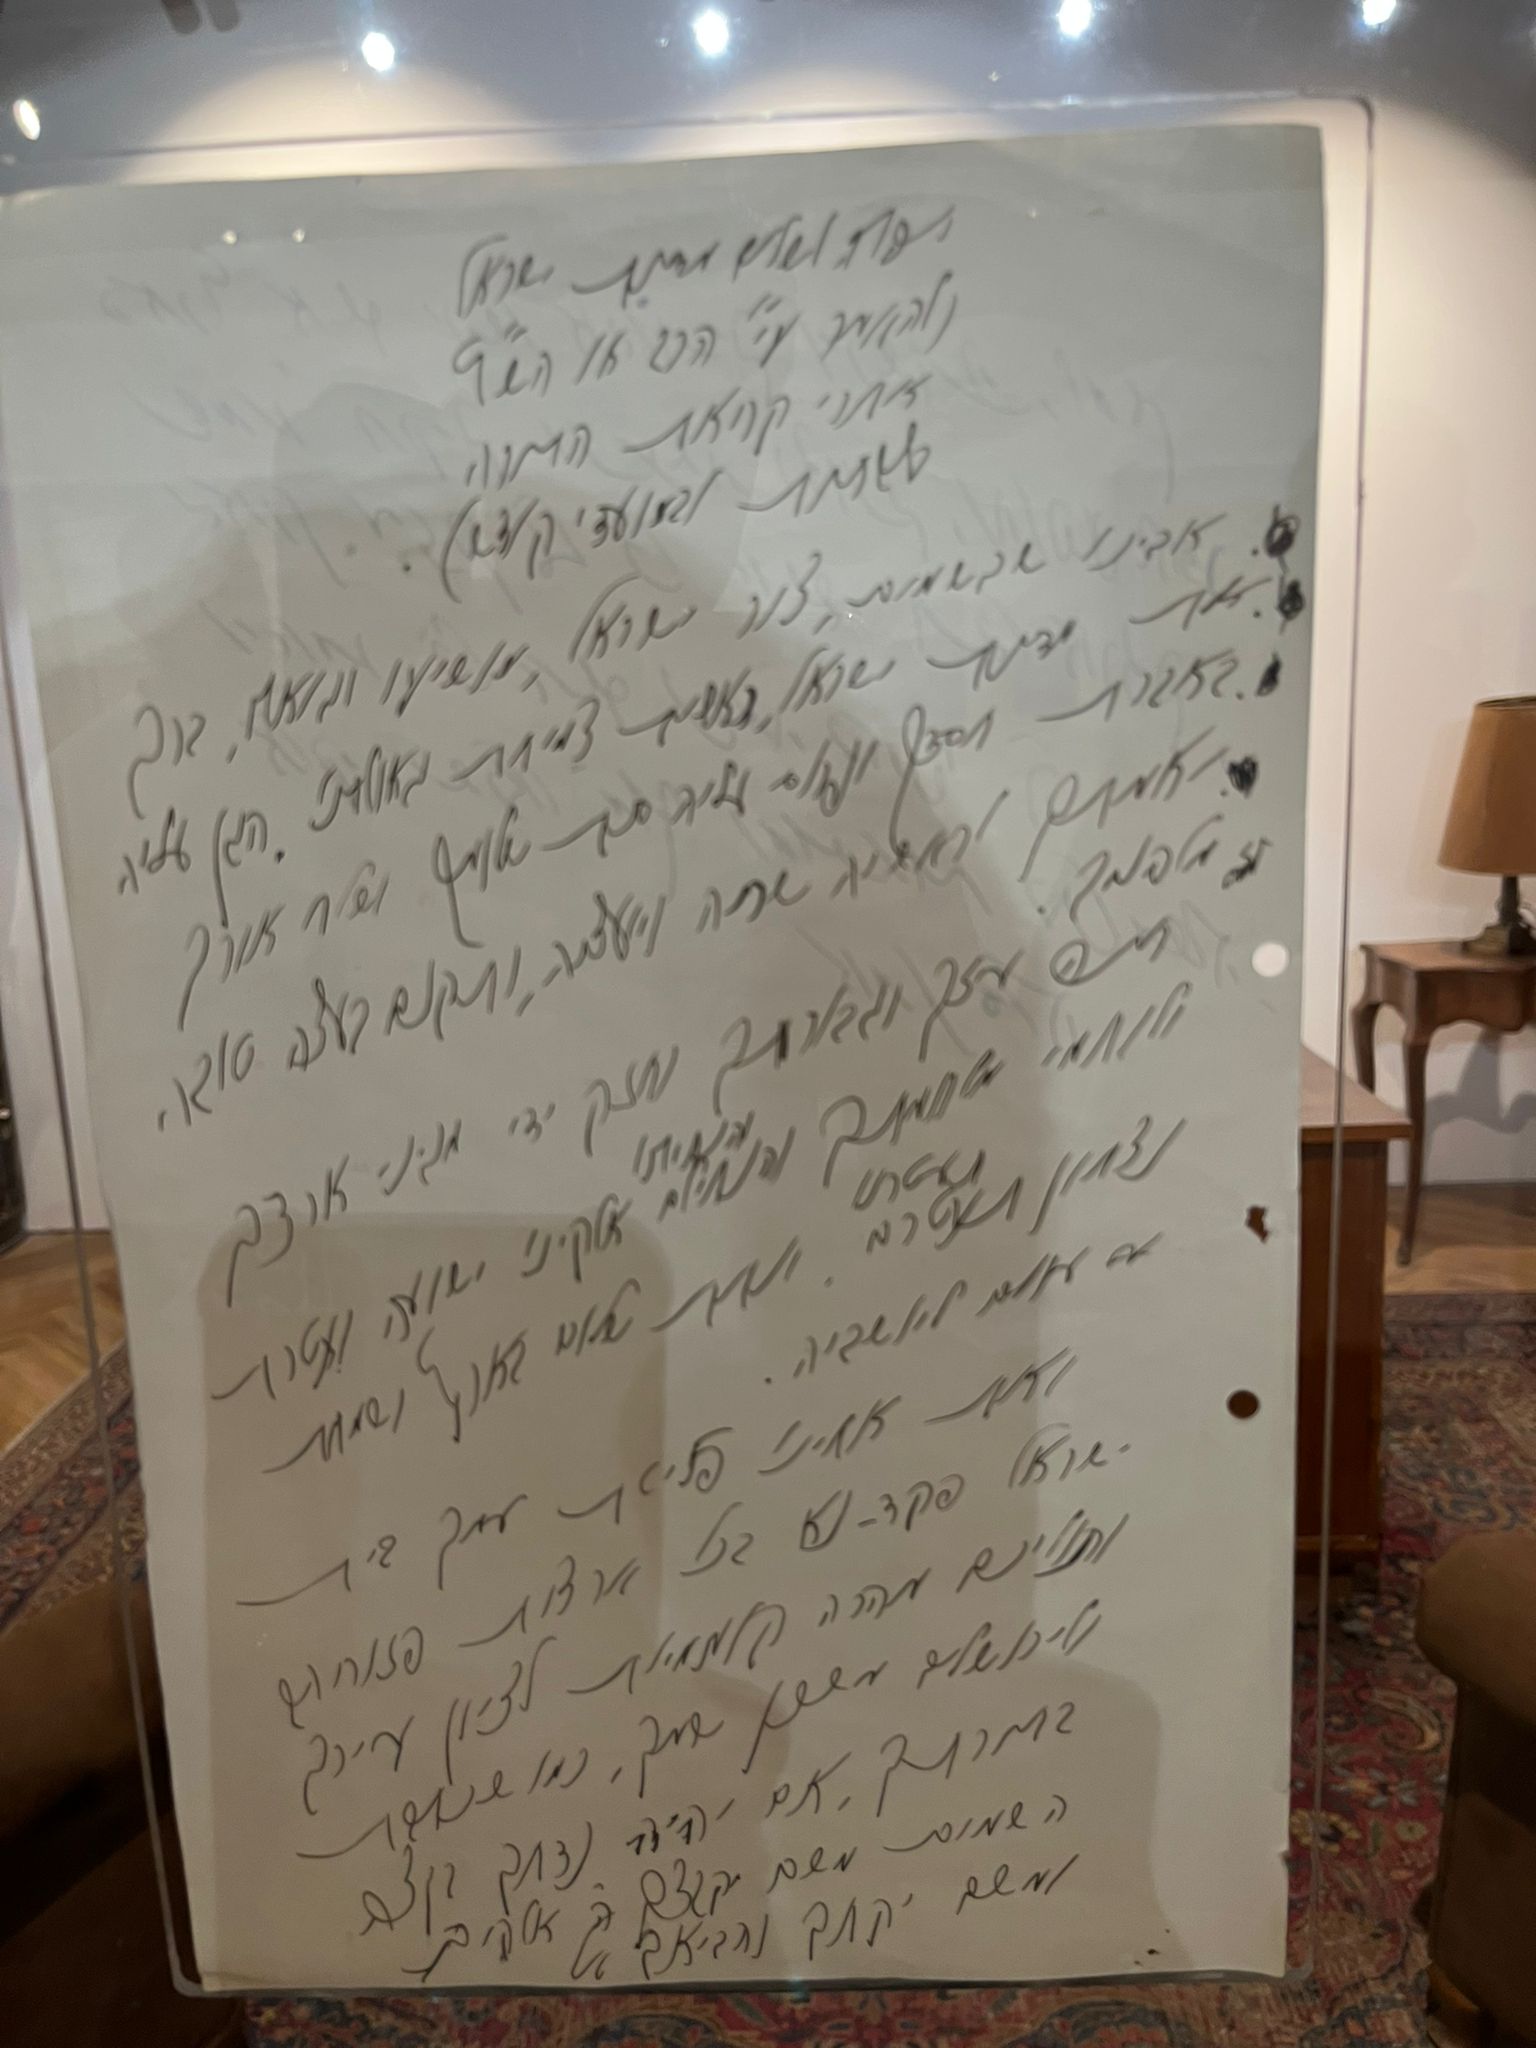 תפלה לשלום מדינת ישראל
(להאמר ע"י הרב או הש"ץ
אחרי קריאת התורה
בשבתות ובמועדי קודש).
אבינו שבשמים, צור ישראל וגואלו, ברך
את מדינת ישראל, ראשית צמיחת גאולתנו. הגן עליה
באברת חסדך ופרוס עליה סכת שלומך ושלח אורך
ואמתך לראשיה שריה ויועציה, ותקנם בעצה טובה
מלפניך.
עזך וגבורתך וחזק ידי מגיני ארצך
ולוחמי מלחמתך והנחילם אלקינו ישועה ועטרת
נצחון תעטרם. ונתת שלום בארץ ושמחת
עולם ליושביה.
ואת אחינו פליטת עמך בית
ישראל פקד-נא בכל ארצות פזוריהם
ותוליכם מהרה קוממיות לציון עירך
ולירושלים משכן שמך, כמו שנאמר
בתורתך, אם יהיה נדחך בקצה
השמים משם יקבצך ה' אלקיך
ומשם יקחך והביאך